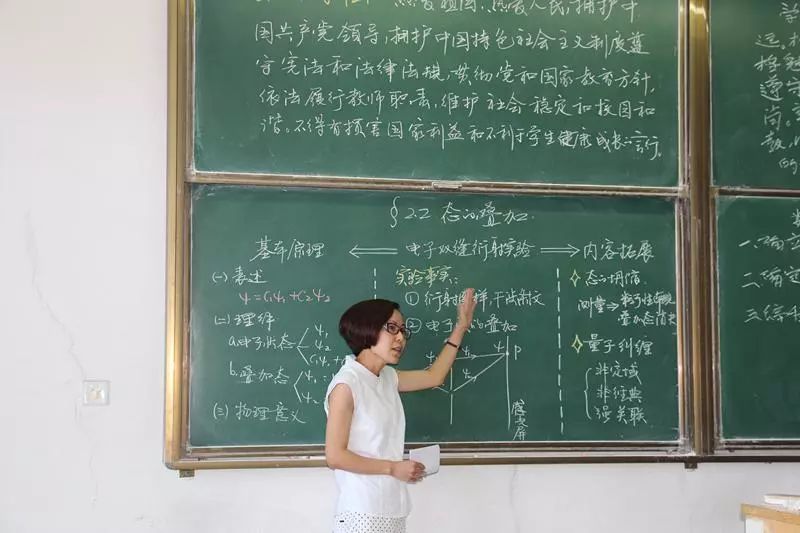 热爱祖国、热爱人民,拥护中
国共产党领导,拥护中国特色社会主义制度遵
守宪法和法律法规,贯彻党和国家教育方针,
依法履行教师职责,维护社会稳定和校园和
谐。不得有损害国家利益和不利于学生健康成长的言行。
§2.2 态的叠加
基本原理
电子双缝衍射实验
内容拓展
(一) 表述
ψ=C₁ψ₁+C₂ψ₂
(二) 理解
a.电子状态
ψ₁
ψ₂
C₁ψ₁+
b.叠加态
ψ₁
ψ₂
(三) 物理意义
实验事实:
① 衍射图样,干涉条文
② 电子 的叠加
ψ₁
ψ₂
P
屏
态的坍缩
测量→
叠加态消失
量子纠缠
非定域
非经典
强关联
学
远。
遵守
岗。
教
的
一.确立
二.确定
三.综